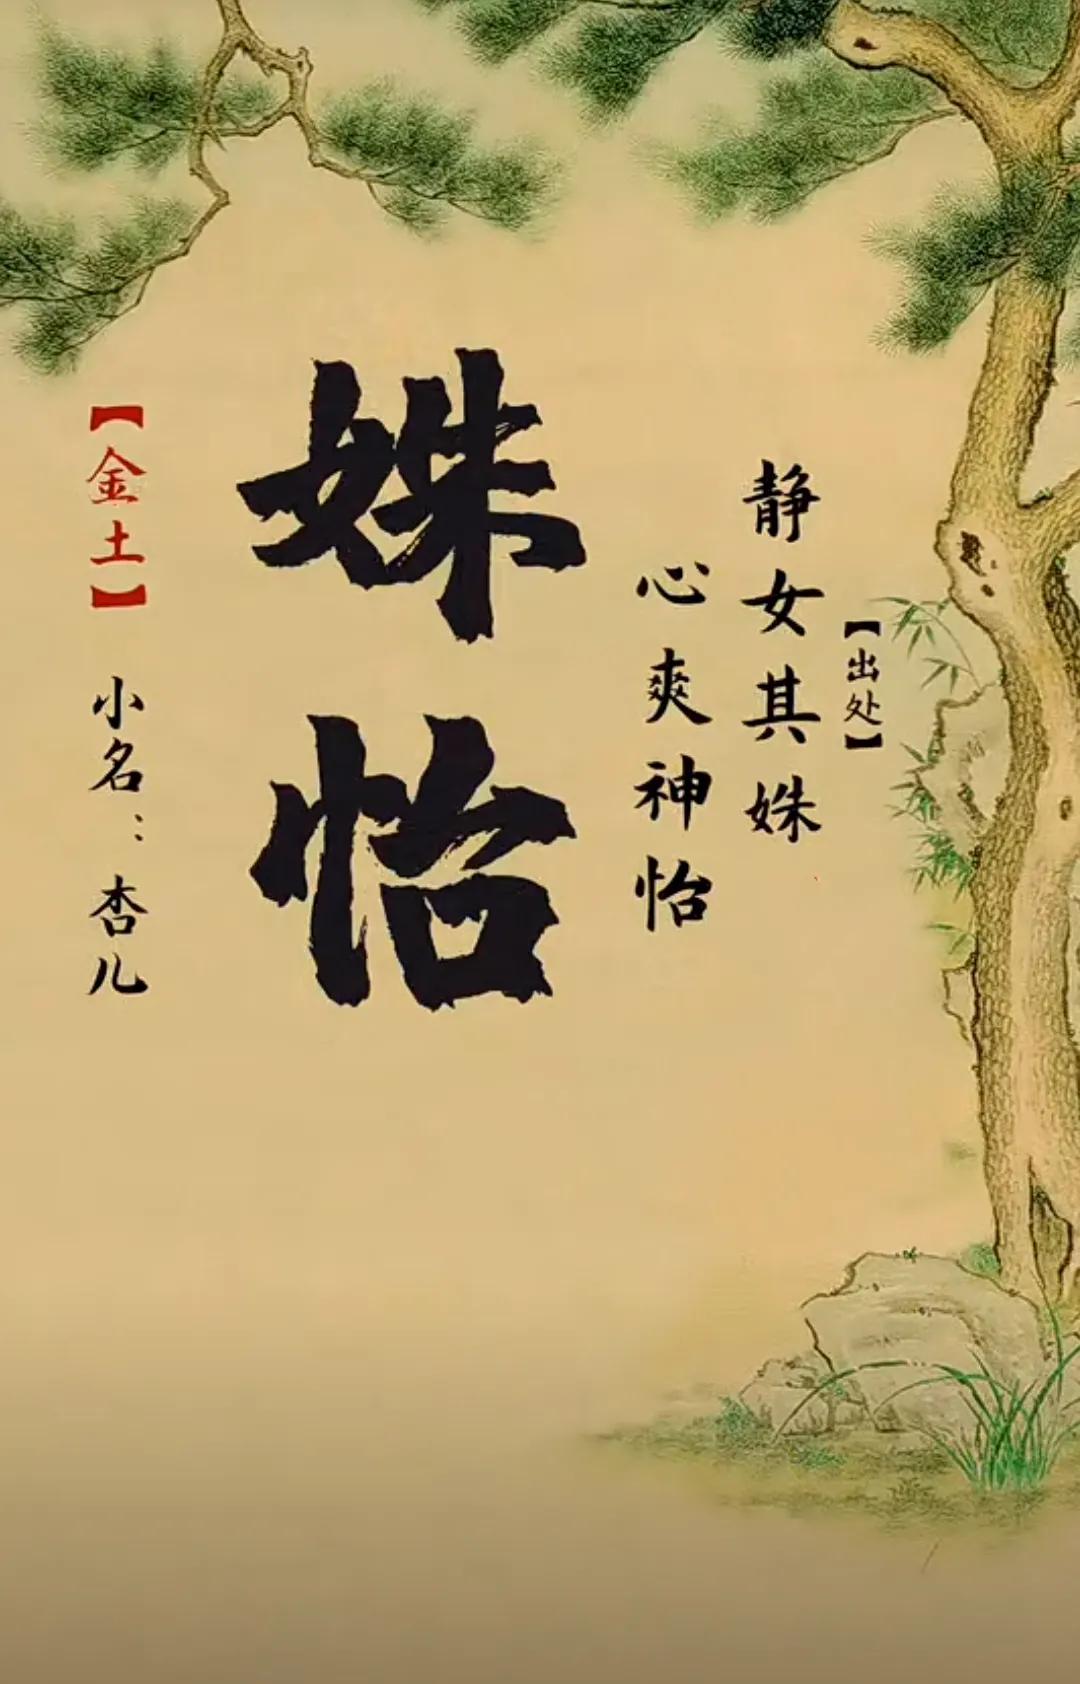 【出处】
静女其姝
心爽神怡
姝怡
【金土】
小名：杏儿